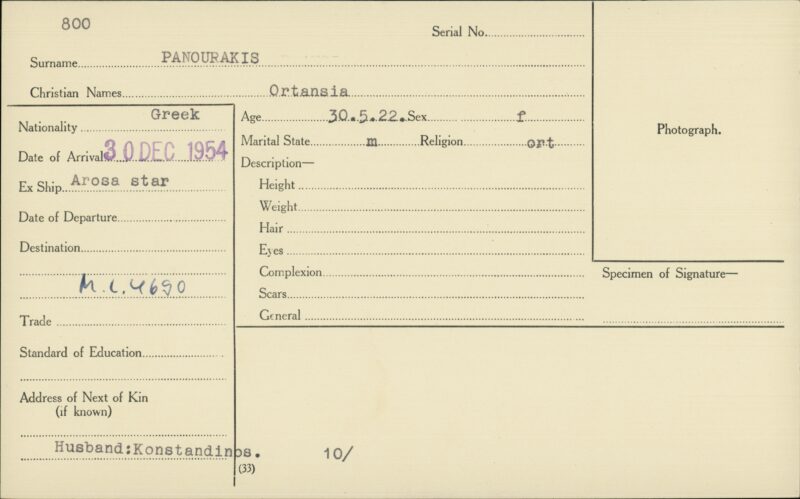 800
Serial No.
Surname PANOURAKIS
Christian Names Ortansia
Nationality Greek
Date of Arrival 30 DEC 1954
Ex Ship Arosa star
Date of Departure
Destination
M.C.4690
Trade
Standard of Education
Address of Next of Kin
(if known)
Husband:Konstandinos.
Age 30.5.22. Sex f
Marital State m Religion ort
Description—
Height
Weight
Hair
Eyes
Complexion
Scars
General
10/
(33)
Photograph.
Specimen of Signature—